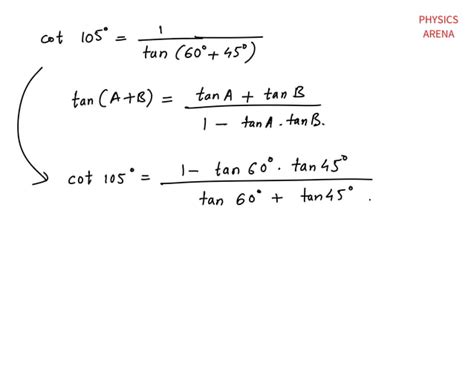 PHYSICS
ARENA
cot 105° = 1 / tan (60° + 45°)
tan (A+B) = tan A + tan B / 1 - tan A . tan B.
cot 105° = 1 - tan 60° . tan 45° / tan 60° + tan 45° .